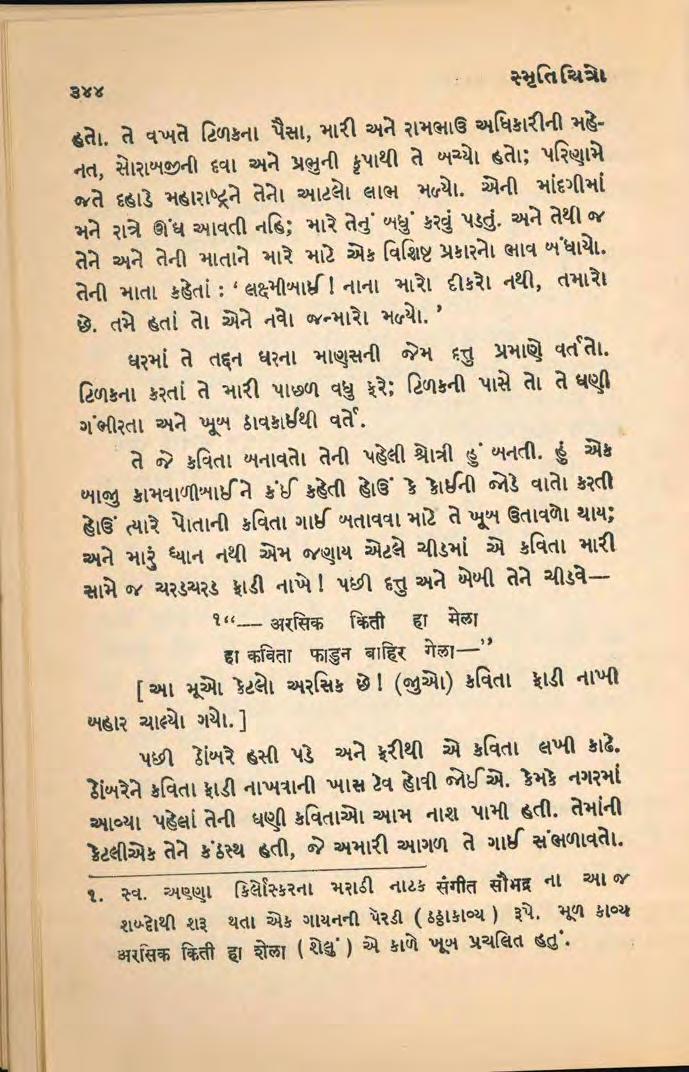 ૩૪૪
સ્મૃતિચિત્રો
હતો. તે વખતે ટિળકના પૈસા, મારી અને રામભાઉ અધિકારીની મહે-
નત, સોરાબજીની દવા અને પ્રભુની કૃપાથી તે બચ્યો હતો; પરિણામે
જતે દહાડે મહારાષ્ટ્રને તેનો આટલો લાભ મળ્યો. એની માંદગીમાં
મને રાત્રે ઊંઘ આવતી નહિ; મારે તેનું બધું કરવું પડતું. અને તેથી જ
તેને અને તેની માતાને મારે માટે એક વિશિષ્ટ પ્રકારનો ભાવ બંધાયો.
તેની માતા કહેતાં : ‘ લક્ષ્મીબાઈ ! નાના મારો દીકરો નથી, તમારો
છે. તમે હતાં તો એને નવો જન્મારો મળ્યો. ’
ઘરમાં તે તદ્દન ઘરના માણસની જેમ દત્તુ પ્રમાણે વર્તતો.
ટિળકના કરતાં તે મારી પાછળ વધુ ફરે; ટિળકની પાસે તો તે ઘણી
ગંભીરતા અને ખૂબ ઠાવકાઈથી વર્તે.
તે જે કવિતા બનાવતો તેની પહેલી શ્રોત્રી હું બનતી. હું એક
બાજુ કામવાળીબાઈને કંઈ કહેતી હોઉં કે કોઈની જોડે વાતો કરતી
હોઉં ત્યારે પોતાની કવિતા ગાઈ બતાવવા માટે તે ખૂબ ઉતાવળો થાય;
અને મારું ધ્યાન નથી એમ જણાય એટલે ચીડમાં એ કવિતા મારી
સામે જ ચરડચરડ ફાડી નાખે ! પછી દત્તુ અને બેબી તેને ચીડવે—
૧“— अरसिक किती हा मेला
हा कविता फाडुन बाहिर गेला—”
[ આ મૂઓ કેટલો અરસિક છે ! (જુઓ) કવિતા ફાડી નાખી
બહાર ચાલ્યો ગયો. ]
પછી ઠોંબરે હસી પડે અને ફરીથી એ કવિતા લખી કાઢે.
ઠોંબરેને કવિતા ફાડી નાખવાની ખાસ ટેવ હોવી જોઈએ. કેમકે નગરમાં
આવ્યા પહેલાં તેની ઘણી કવિતાઓ આમ નાશ પામી હતી. તેમાંની
કેટલીએક તેને કંઠસ્થ હતી, જે અમારી આગળ તે ગાઈ સંભળાવતો.
૧. સ્વ. અણ્ણા કિર્લોસ્કરના મરાઠી નાટક संगीत सौभद्र ના આ જ
શબ્દોથી શરૂ થતા એક ગાયનની પૅરડી ( ઠઠ્ઠાકાવ્ય ) રૂપે. મૂળ કાવ્ય
अरसिक किती हा शेला ( શેલું ) એ કાળે ખૂબ પ્રચલિત હતું.